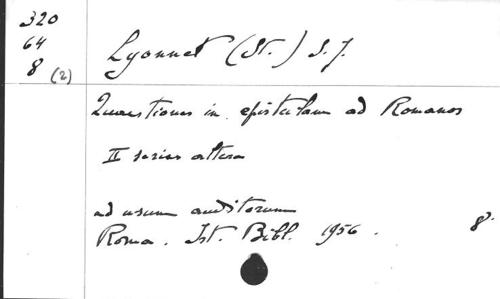 320
64
8 (2)
Lyonnet (St.) S. J.
Quaestiones in epistulam ad Romanos
II series altera
ad usum auditorum
Roma. Ist. Bibl. 1956. 8°